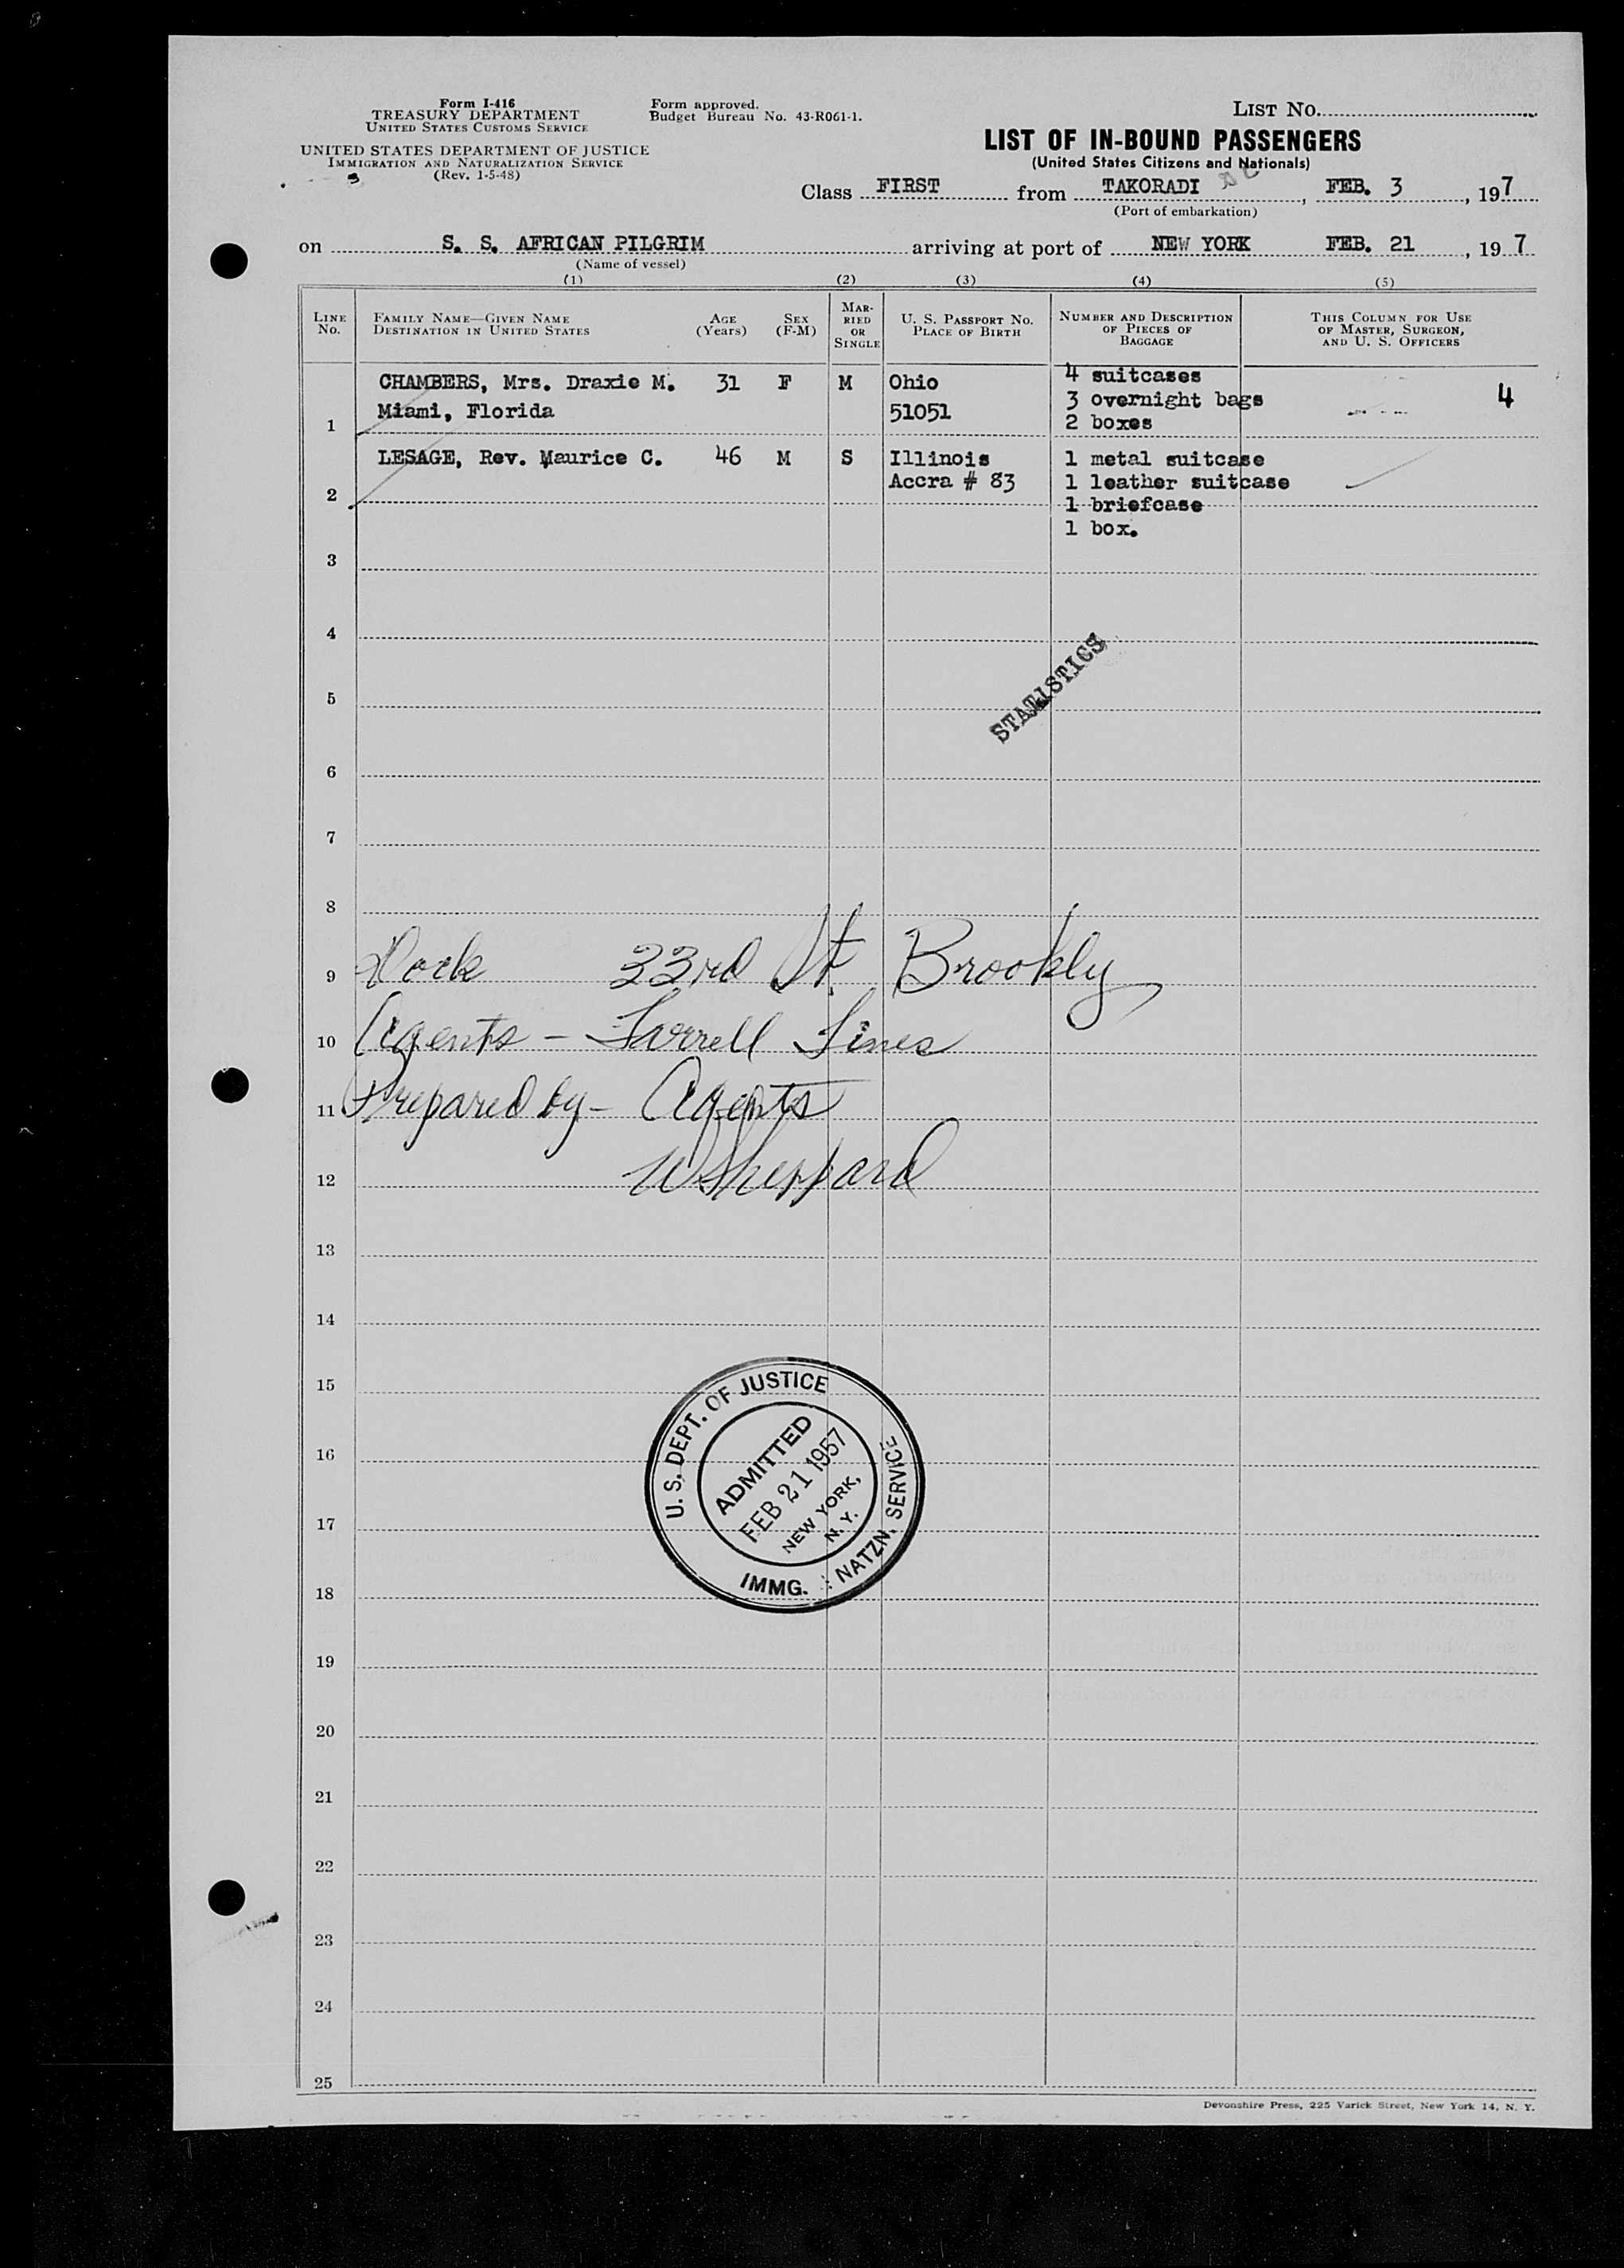 Form I-416
TREASURY DEPARTMENT
UNITED STATES CUSTOMS SERVICE
UNITED STATES DEPARTMENT OF JUSTICE
IMMIGRATION AND NATURALIZATION SERVICE
(Rev. 1-5-48)
Form approved.
Budget Bureau No. 43-R061-1.
LIST NO.
LIST OF IN-BOUND PASSENGERS
(United States Citizens and Nationals)
Class FIRST from TAKORADI, FEB. 3, 197
(Port of embarkation)
on S. S. AFRICAN PILGRIM arriving at port of NEW YORK FEB. 21, 197
(Name of vessel)
(1) (2) (3) (4) (5)
LINE No. FAMILY NAME—GIVEN NAME DESTINATION IN UNITED STATES AGE (Years) SEX (F-M) MARRIED OR SINGLE U. S. PASSPORT NO. PLACE OF BIRTH NUMBER AND DESCRIPTION OF PIECES OF BAGGAGE THIS COLUMN FOR USE OF MASTER, SURGEON, AND U. S. OFFICERS
CHAMBERS, Mrs. Draxie M. 31 F M Ohio 4 suitcases 4
Miami, Florida 51051 3 overnight bags
1 2 boxes
LESAGE, Rev. Maurice C. 46 M S Illinois 1 metal suitcase
Accra # 83 1 leather suitcase
2 1 briefcase
1 box.
3
4
STATISTICS
5
6
7
8
9 Dock 33rd St. Brookly
10 Agents - Farrell Lines
11 Prepared by - Agents
12 W Sheppard
13
14
15
16
17
18
U. S. DEPT. OF JUSTICE
ADMITTED
FEB 21 1957
NEW YORK,
N. Y.
IMMG. : NATZN. SERVICE
19
20
21
22
23
24
25
Devonshire Press, 225 Varick Street, New York 14, N. Y.